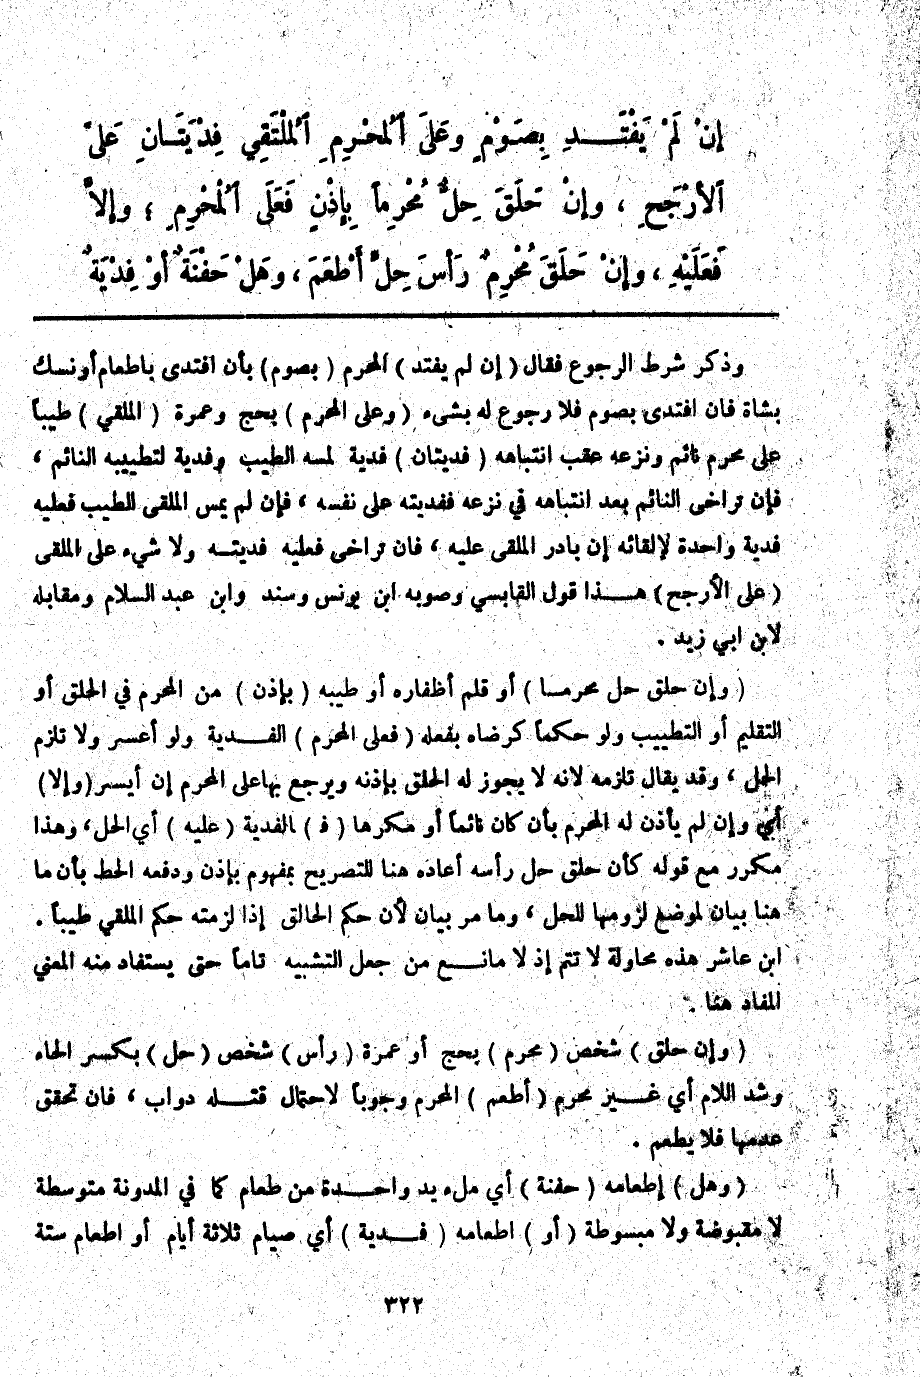 إِنْ لَمْ يَفْتَـــدِ بِصَوْمٍ وعَلَى ٱلْمحْرِمِ ٱلْملْتَقِي فِدْيَتَـانِ عَلَى
ٱلأرْجَحِ ، وإِنْ حَلَقَ حِلٌّ مُحْرِماً بِإِذْنٍ فَعَلَى ٱلْمُحْرِمِ ؛ وإِلاَّ
فَعَلَيْهِ ، وإِنْ حَلَقَ مُحْرِمٌ رَأسَ حِلٍّ أَطْعَمَ ، وهَلْ حَفْنَةٌ أوْ فِدْيَةٌ
وذكر شرط الرجوع فقال ( إن لم يفتد ) المحرم ( بصوم ) بأن افتدى باطعام أو نسك
بشاة فان افتدى بصوم فلا رجوع له بشيء ( وعلى المحرم ) بحج وعمرة ( الملقي ) طيباً
على محرم نائم ونزعه عقب انتباهه ( فديتان ) فدية لمسه الطيب وفدية لتطييبه النائم ،
فإن تراخى النائم بعد انتباهه في نزعه ففديته على نفسه ، فإن لم يمس الملقى الطيب فعليه
فدية واحدة لإلقائه إن بادر الملقى عليه ، فان تراخى فعليه فديتــه ولا شيء على الملقى
( على الأرجح ) هــذا قول القابسي وصوبه ابن يونس وسند وابن عبد السلام ومقابله
لابن ابي زيد .
( وإن حلق حل محرمـا ) أو قلم أظفاره أو طيبه ( بإذن ) من المحرم في الحلق أو
التقليم أو التطييب ولو حكماً كرضاه بفعله ( فعلى المحرم ) الفــدية ولو أعسر ولا تلزم
الحل ، وقد يقال تلزمه لانه لا يجوز له الحلق بإذنه ويرجع بها على المحرم إن أيسر (وإلا)
أي وإن لم يأذن له المحرم بأن كان نائماً أو مكرها ( فـ ) الفدية ( عليه ) أي الحل ، وهذا
مكرر مع قوله كأن حلق حل رأسه أعاده هنا للتصريح بمفهوم بإذن ودفعه الحط بأن ما
هنا بيان لموضع لزومها للحل ، وما مر بيان لأن حكم الحالق إذا لزمته حكم الملقي طيباً .
ابن عاشر هذه محاولة لا تتم إذ لا مانــع من جعل التشبيه تاماً حتى يستفاد منه المعني
المفاد هنا .
( وإن حلق ) شخص ( محرم ) بحج أو عمرة ( رأس ) شخص ( حل ) بكسر الحاء
وشد اللام أي غـــير محرم ( أطعم ) المحرم وجوباً لاحتمال قتــله دواب ، فان تحقق
عدمها فلا يطعم .
( وهل ) إطعامه ( حفنة ) أي ملء يد واحــدة من طعام كما في المدونة متوسطة
لا مقبوضة ولا مبسوطة ( أو ) اطعامه ( فــدية ) أي صيام ثلاثة أيام أو اطعام ستة
٣٢٢